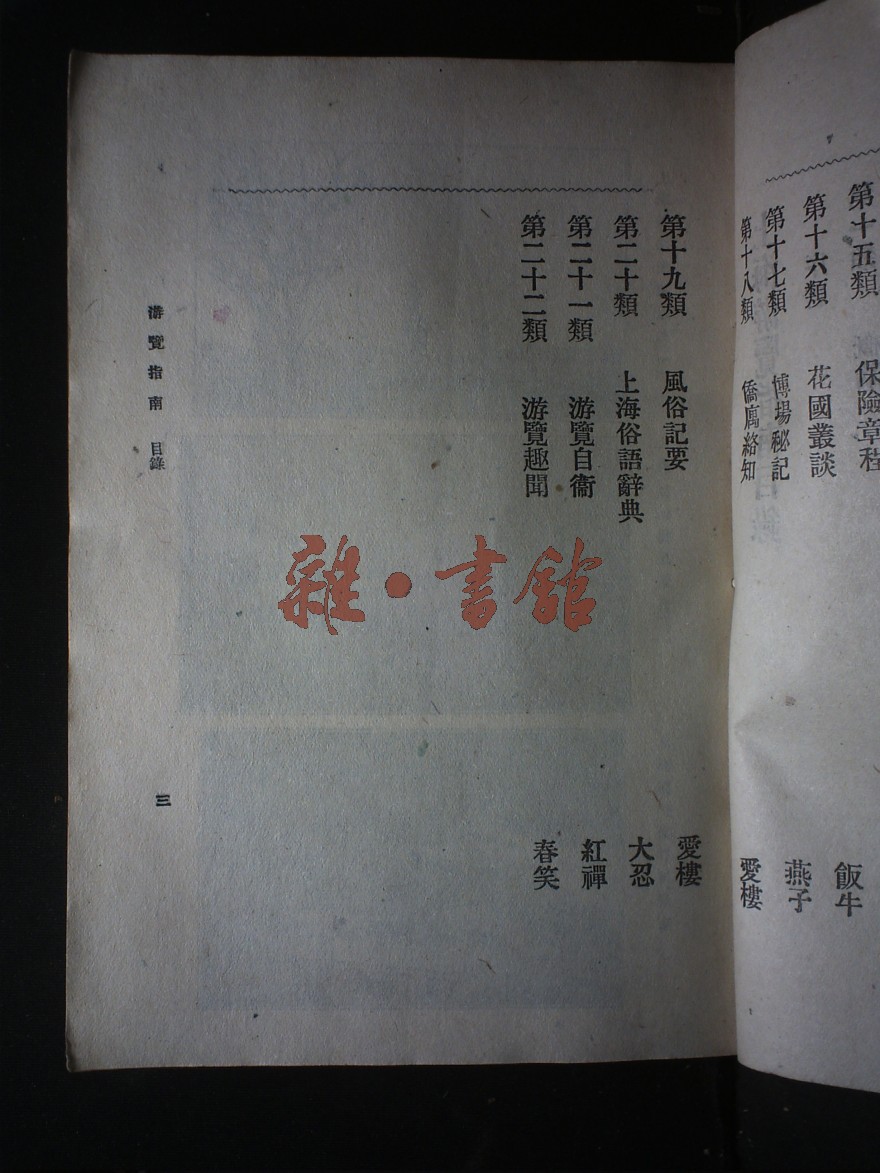 第十五類 保險章程
第十六類 花國叢談 飯牛
第十七類 博場秘記 燕子
第十八類 僑寓絡知 愛樓
第十九類 風俗記要 愛樓
第二十類 上海俗語辭典 大忍
第二十一類 游覽自衛 紅禪
第二十二類 游覽趣聞 春笑
游覽指南 目錄
三
雜·書館